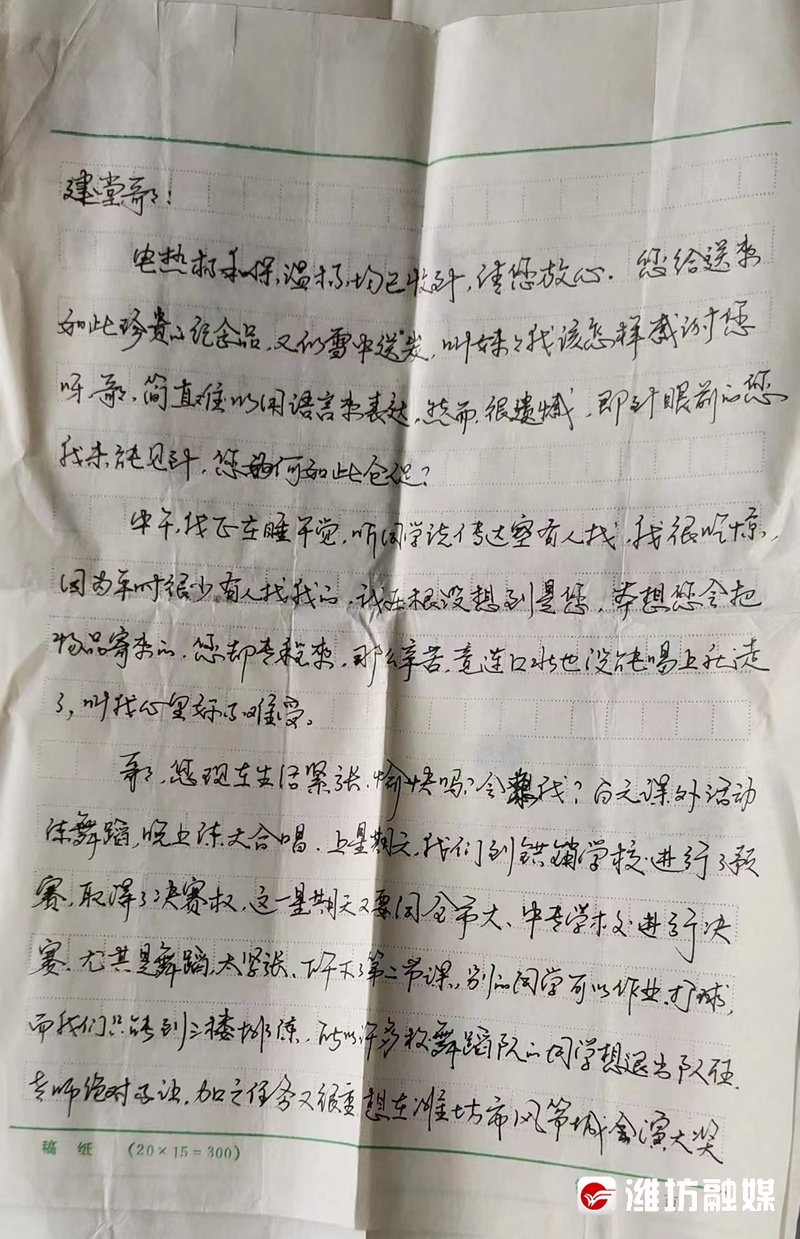 建堂哥：
电热杯和保温杯均已收到，请您放心．您给送来
如此珍贵的纪念品，又似雪中送炭，叫妹妹我该怎样感谢您
呀哥，简直难以用语言来表达，然而，很遗憾，即到眼前的您
我未能见到，您为何如此仓促？
中午，我正在睡午觉，听同学说传达室有人找，我很吃惊，
因为平时很少有人找我的，试也根没想到是您，本想您会把
物品寄来的，您却专程来，那么辛苦，竟连口水也没能喝上就走
了，叫我心里好不难受。
哥，您现在生活紧张、愉快吗？会想我？白天课外活动
练舞蹈，晚上练大合唱．上星期天，我们到供销学校进行了预
赛，取得了决赛权，这一星期天又要同全市大、中专学校进行决
赛．尤其是舞蹈，太紧张，下午下了第二节课，别的同学可以作业、打球，
而我们只能到三楼排练，所以许多校舞蹈队的同学想退出队伍．
老师绝对不让，加之任务又很重，想在潍坊市风筝城会演大奖
稿 纸 (20×15=300)
潍坊融媒